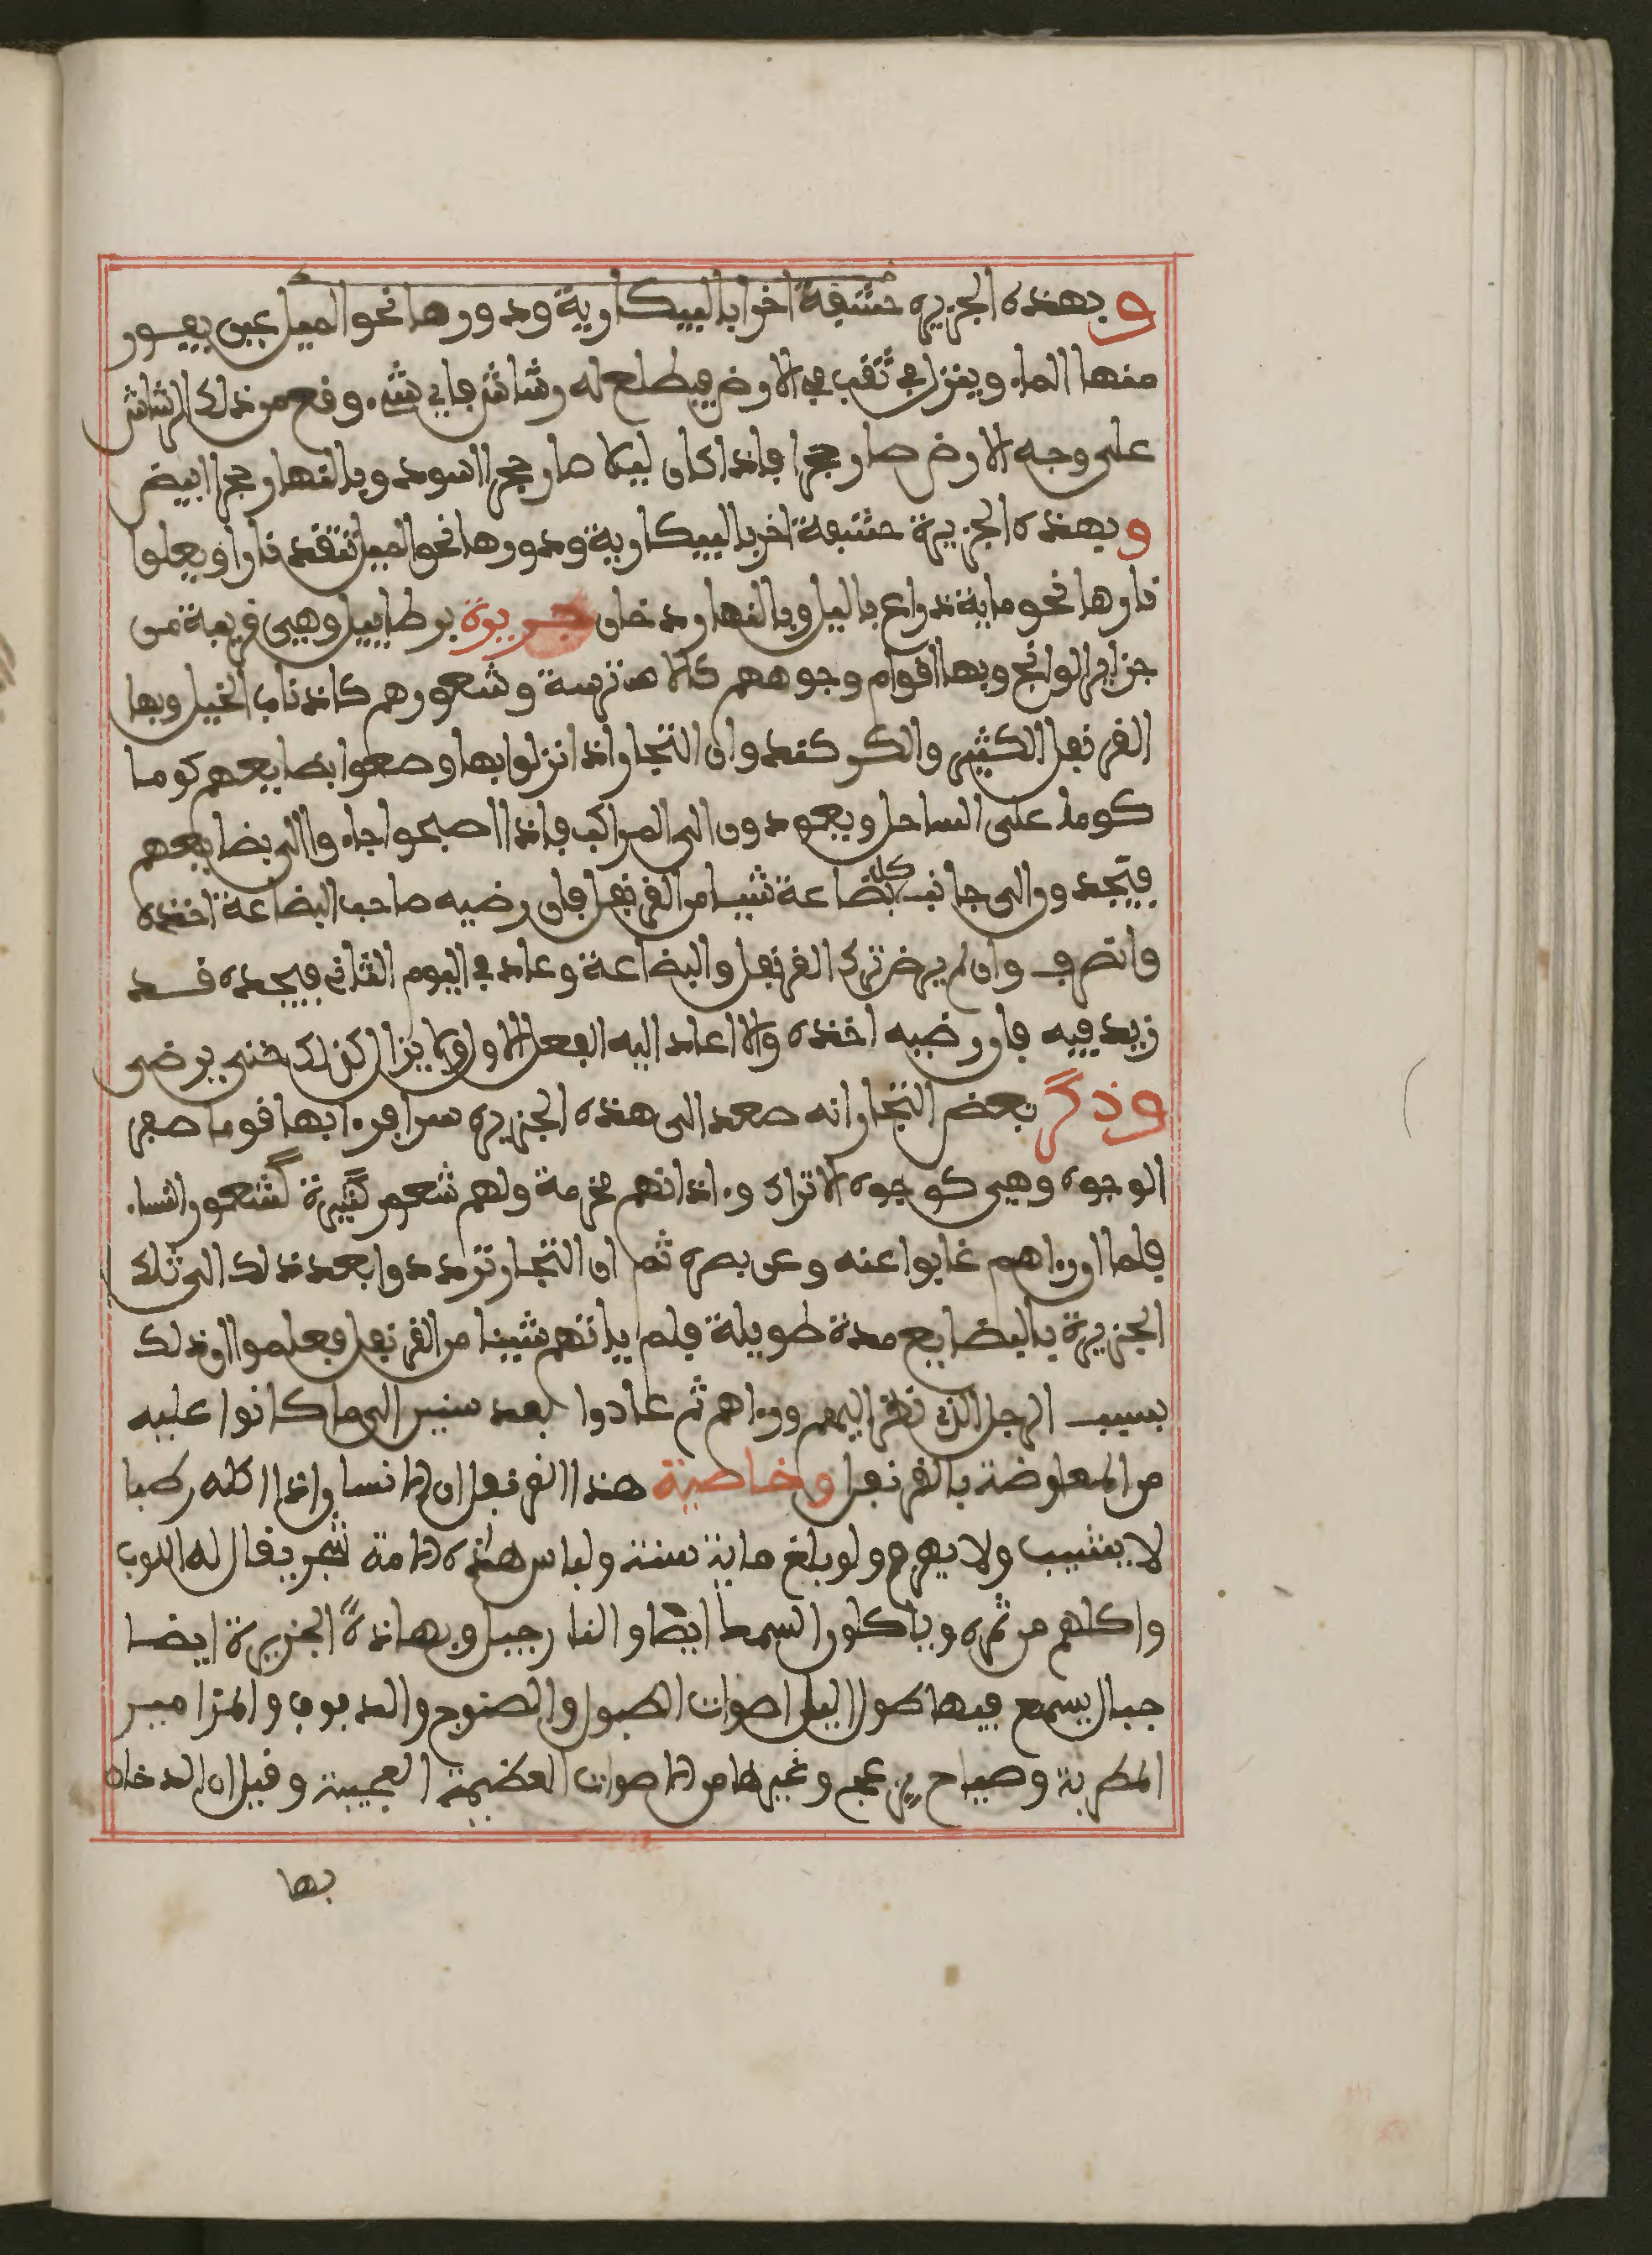 وبهذه الجزيره حشفة اخرا بالبيكارية ودورها نحو الميل عين يفور
منها الماء وينزل في ثقب في الارض فيطلع له رشاش فاي شيء وقع من ذلك الرشاش
على وجه الارض صار حجرا فاذا كان ليلا صار حجرا اسود وبالنهار حجرا ابيض
وبهذه الجزيرة حشفة اخر بالبيكارية ودورها نحو الميل تتقد نارا ويعلوا
نارها نحو ماية ذراع باليل وبالنهار دخان جزيرة برطاييل وهي قريبة من
جزاير الوانج وبها اقوام وجوههم كالا هترسة وشعورهم كاذناب الخيل وبها
القرنفل الكثير والكركند وان التجار اذا نزلوا بها وضعوا بضايعهم كوما
كوما على الساحل ويعودون الى المراكب فاذا اصبحوا جاء والى بضايعهم
فيجدو والى جانب كل بضاعة شيا من القرنفل فان رضيه صاحب البضاعة اخذه
وانصرف وان لم يرض ترك القرنفل والبضاعة وعاد في اليوم الثاني فيجده قد
زيد فيه فان رضيه اخذه والا اعاد اليه الفعل الاول ولا يزال كذلك حتى يرضى
وذكر بعض التجار انه صعد الى هذه الجزيره سرا فرءا بها قوما صفر
الوجوه وهي كوجوه الاتراك وءاذانهم مخرمة ولهم شعور كثيرة كشعور النساء
فلما اورءاهم غابوا عنه وعن بصره ثم ان التجار ترددوا بعد ذلك الى تلك
الجزيرة بالبضايع مدة طويلة فلم ياتهم شيا من القرنفل فعلموا ان ذلك
بسبب الرجل الذي نظر اليهم ورءاهم ثم عادوا بعد سنين الى ما كانوا عليه
من المعاوضة بالقرنفل وخاصية هذا القرنفل ان الانسان اذا اكله رطبا
لا يشيب ولا يهرم ولو بلغ ماية سنة ولباس هذه الامة شجر يقال له اللوب
واكلهم من ثمره وياكلون السمك ايضا والنارجيل وبهاذه الجزيرة ايضا
جبال يسمع فيها طول اليل اصوات الطبول والصنوج والدفوف والمزامير
المطربة وصياح مزعج وغيرها من الاصوات العظيمة العجيبة وقيل ان الدخان
بها